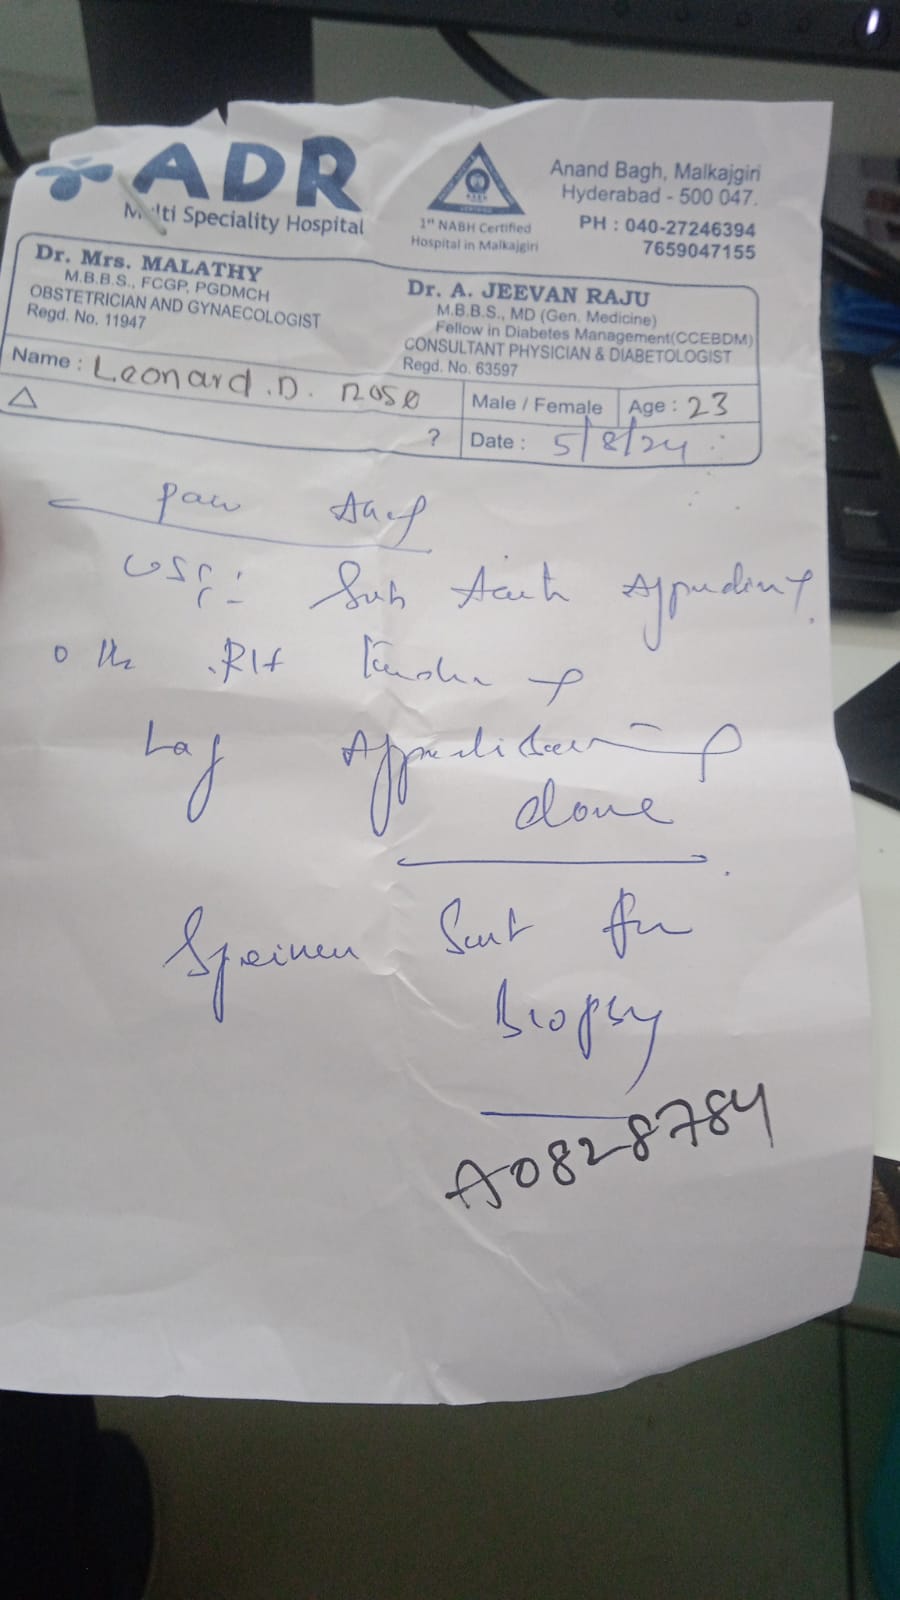 ADR
Multi Speciality Hospital
1st NABH Certified
Hospital in Malkajgiri
Anand Bagh, Malkajgiri
Hyderabad - 500 047.
PH : 040-27246394
7659047155
Dr. Mrs. MALATHY
M.B.B.S., FCGP, PGDMCH
OBSTETRICIAN AND GYNAECOLOGIST
Regd. No. 11947
Dr. A. JEEVAN RAJU
M.B.B.S., MD (Gen. Medicine)
Fellow in Diabetes Management(CCEBDM)
CONSULTANT PHYSICIAN & DIABETOLOGIST
Regd. No. 63597
Name : Leonard .D. Rose
Male / Female Age : 23
? Date : 5/8/24
Pain
USG :- Sub Acute
RIF
Lap
done
Specimen Sent for
Biopsy
A0828784